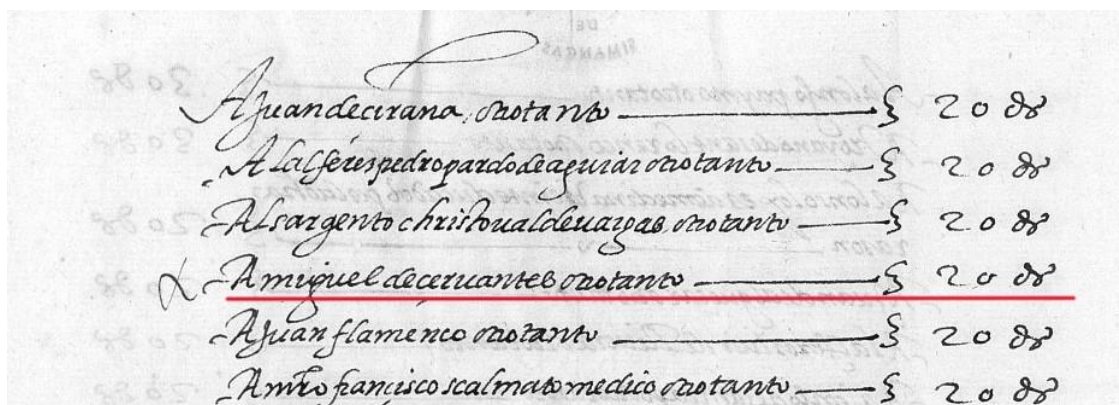 DE
SIMANCAS
A Juan de cirana, otro tanto 20 ds
Al alferes pedro pardo de aguiar otro tanto 20 ds
Al sargento christoual de uargas otro tanto 20 ds
A miguel de ceruantes otro tanto 20 ds
A Juan flamenco otro tanto 20 ds
A mro francisco scalmato medico otro tanto 20 ds